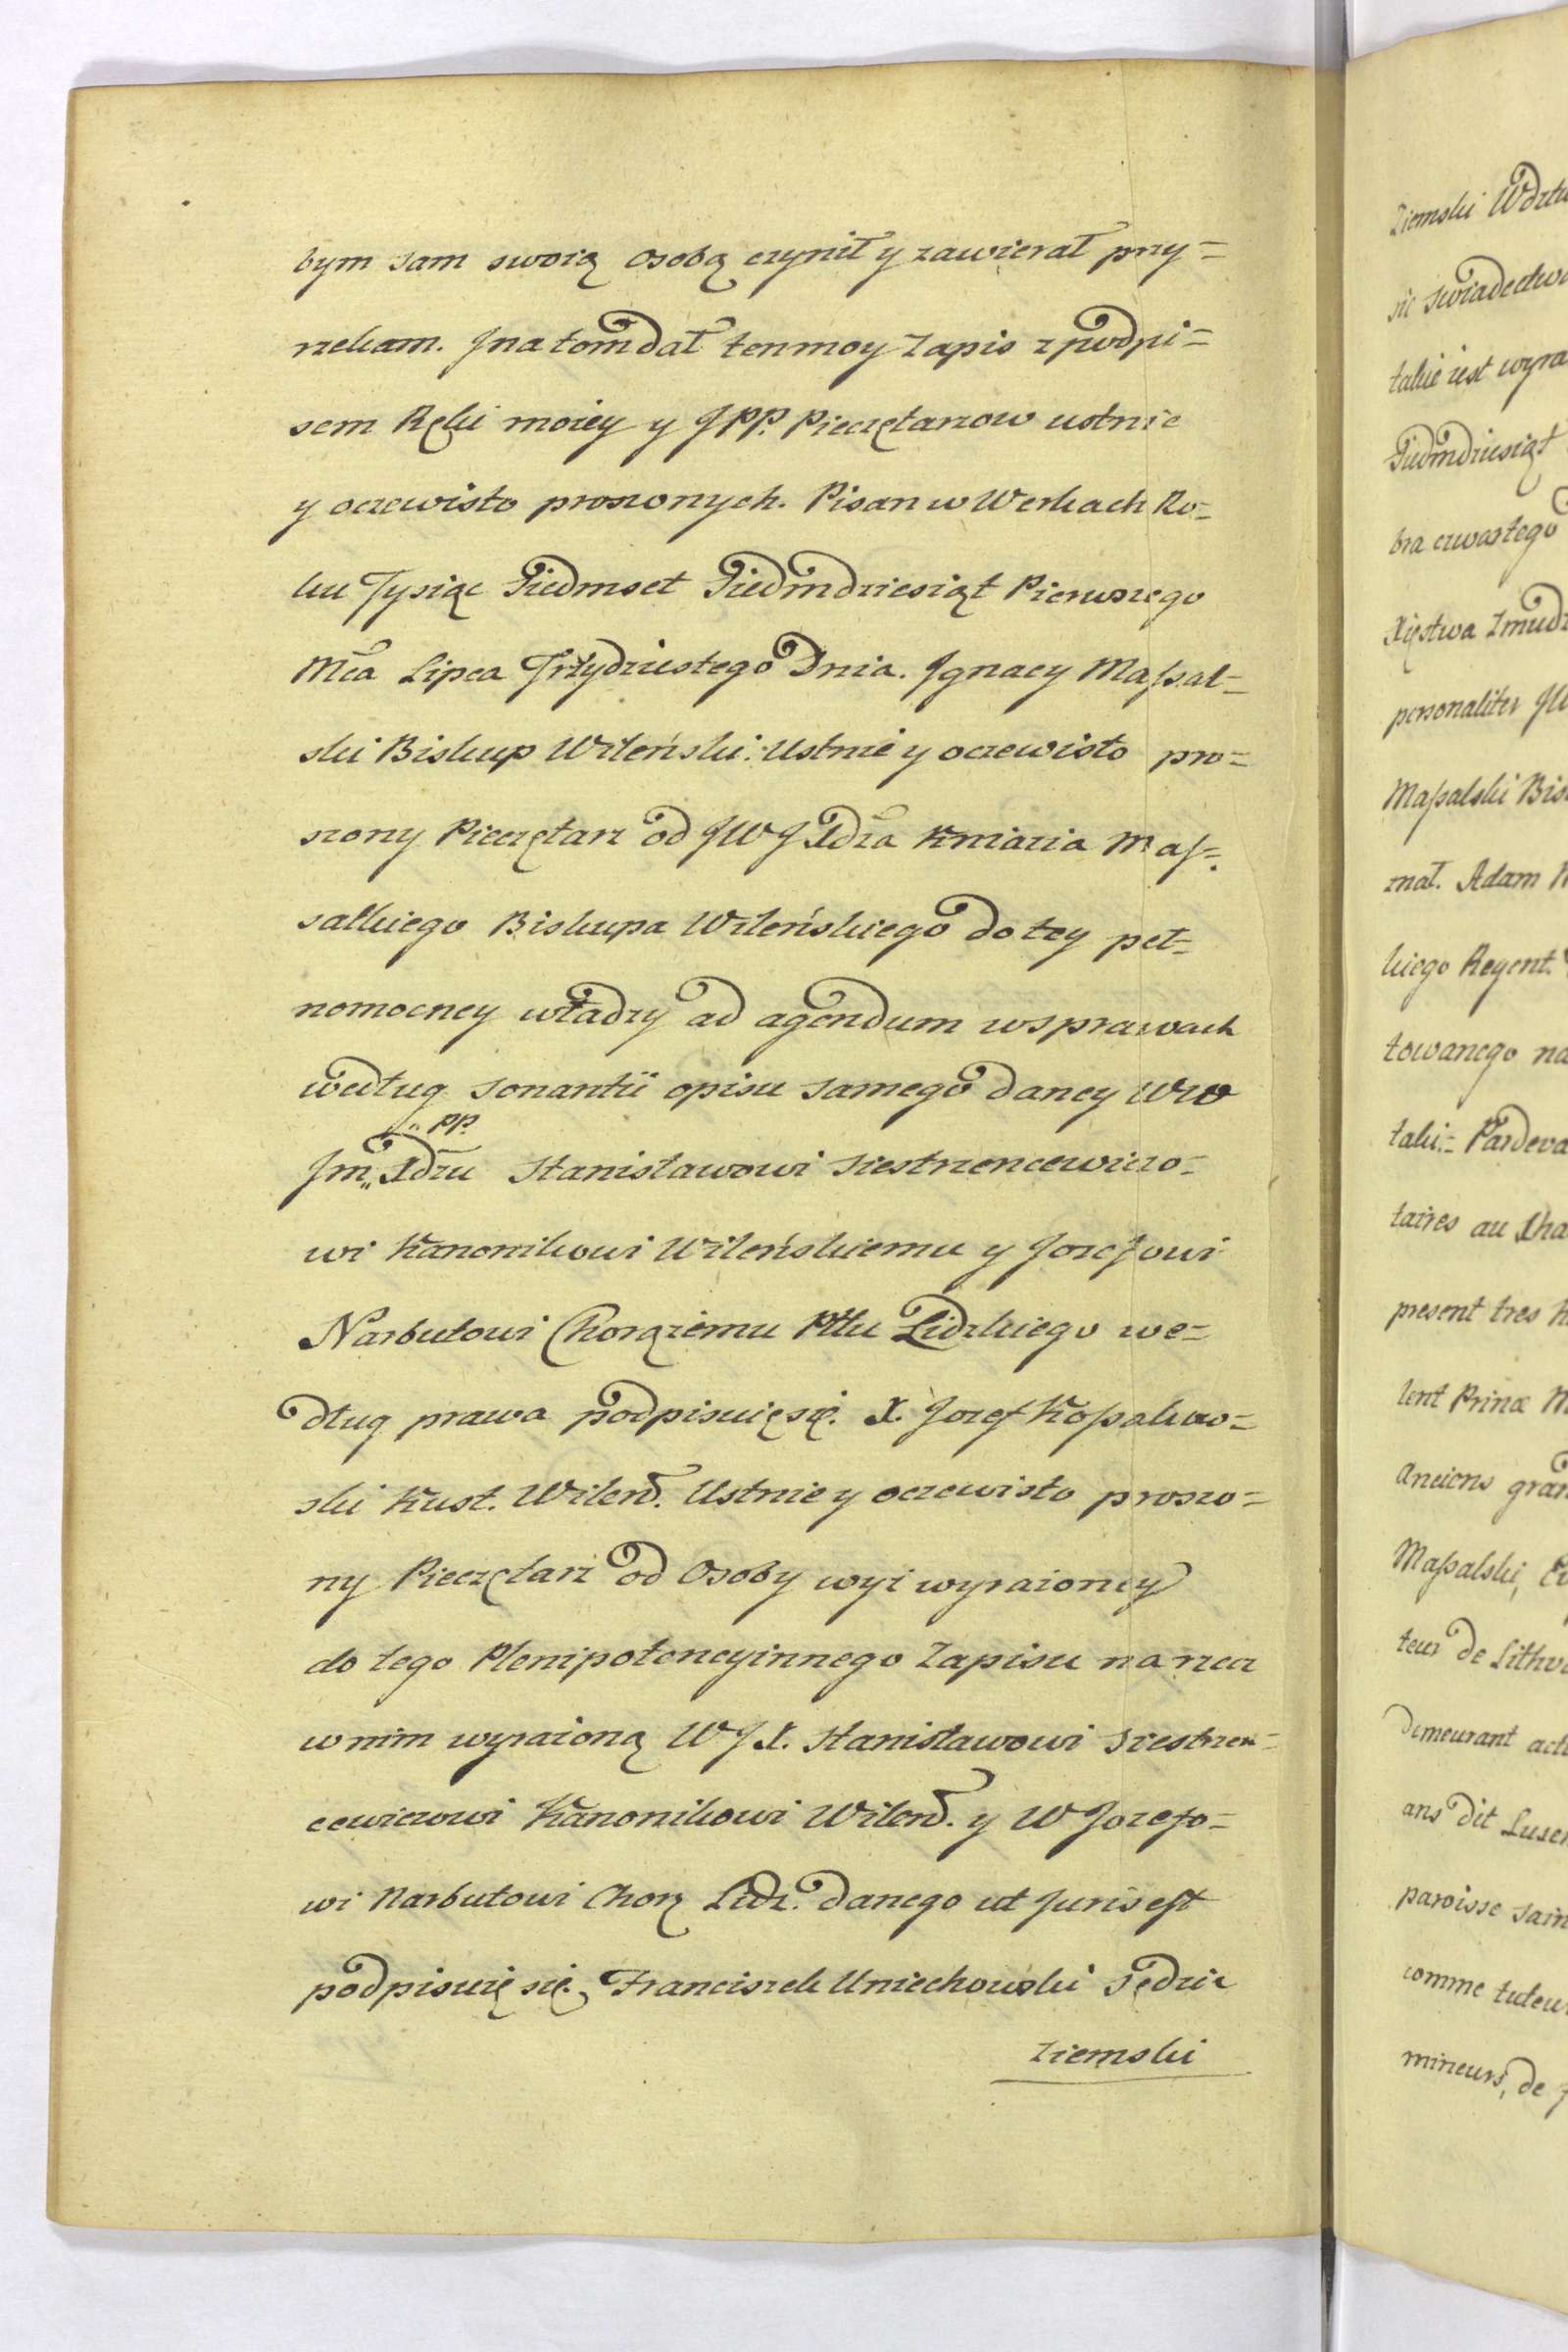 bym sam swoią osobą czynił y zawierał przy=
rzekam. Jna tom dał ten moy Zapis z podpi=
sem Ręki moiey y JPP. Pieczętarzow ustnie
y oczewisto proszonych. Pisan w Werkach Ro=
ku Tysiąc Siedmset Siedmdziesiąt Pierwszego
Mca Lipca Trzydziestego Dnia. Ignacy Massal=
ski Biskup Wileński: Ustnie y oczewisto pro=
szony Pieczętarz od JWJXdza Kniazia Mas=
salkiego Biskupa Wileńskiego do tey peł=
nomocney władzy ad agendum w sprawach
według sonantii opisu samego daney WW
PP.
Jm„Xdzu Stanisławowi Siestrzencewiczo=
wi Kanonikowi Wileńskiemu y Jozefowi
Narbutowi Chorążemu Pttu Lidzkiego we=
dług prawa podpisuię się. X. Jozef Kossakow=
ski Kust. Wileń. Ustnie y oczewisto proszo=
ny Pieczętarz od Osoby wyż wyrażoney
do tego Plenipotencyinnego Zapisu na rzecz
w nim wyrażoną WJX. Stanisławowi Siestrzen=
cewiczowi Kanonikowi Wileń. y W Jozefo=
wi Narbutowi Chorą Lidz. danego ut Juris est
podpisuię się. Franciszek Uniechowski Sędzia
Ziemski
Ziemski
sie swiadectwo
takie iest wyra
Siedmdziesiąt
bra czwartego
Xięstwa Zmudz
personaliter JW
Massalski Bis
znał. Adam
kiego Regent.
towanego na
taki:= Pardeva
taires au Cha
present tres
lent Prince M
Anciens gran
Massalski,
teur de Lithu
demeurant act
ans dit Luxem
paroisse Sain
comme tuteur
mineurs, de